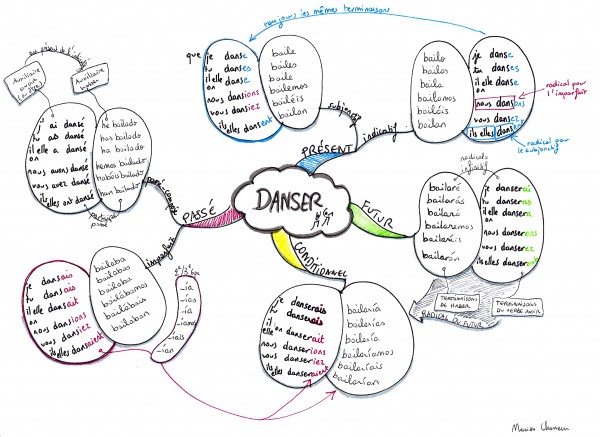 toujours les mêmes terminaisons
que je danse
tu danses
il elle danse
on
nous dansions
vous dansiez
ils elles dansent
baile
bailes
baile
bailemos
bailéis
bailen
subjonctif
bailo
bailas
baila
bailamos
bailáis
bailan
indicatif
je danse
tu danses
il elle danse
on
nous dansons
vous dansez
ils elles dansent
radical pour
l'imparfait
radical pour
le subjonctif
PRÉSENT
DANSER
FUTUR
radicals
infinitif
bailaré
bailarás
bailará
bailaremos
bailaréis
bailarán
je danserai
tu danseras
il elle dansera
on
nous danserons
vous danserez
ils elles danseront
TERMINAISONS
DE HABER
TERMINAISONS
DU VERBE AVOIR
RADICAL DU FUTUR
CONDITIONNEL
je danserais
tu danserais
il elle danserait
on
nous danserions
vous danseriez
ils elles danseraient
bailaría
bailarías
bailaría
bailaríamos
bailaríais
bailarían
PASSÉ
passé composé
au présent de l'indicatif
Auxiliaire
avoir
(ou être)
Auxiliaire
haber
j'ai dansé
tu as dansé
il elle a dansé
on
nous avons dansé
vous avez dansé
ils elles ont dansé
he bailado
has bailado
ha bailado
hemos bailado
habéis bailado
han bailado
participe
passé
imparfait
je dansais
tu dansais
il elle dansait
on
nous dansions
vous dansiez
ils elles dansaient
bailaba
bailabas
bailaba
bailábamos
bailabais
bailaban
-ía
-ías
-ía
-íamos
-íais
-ían